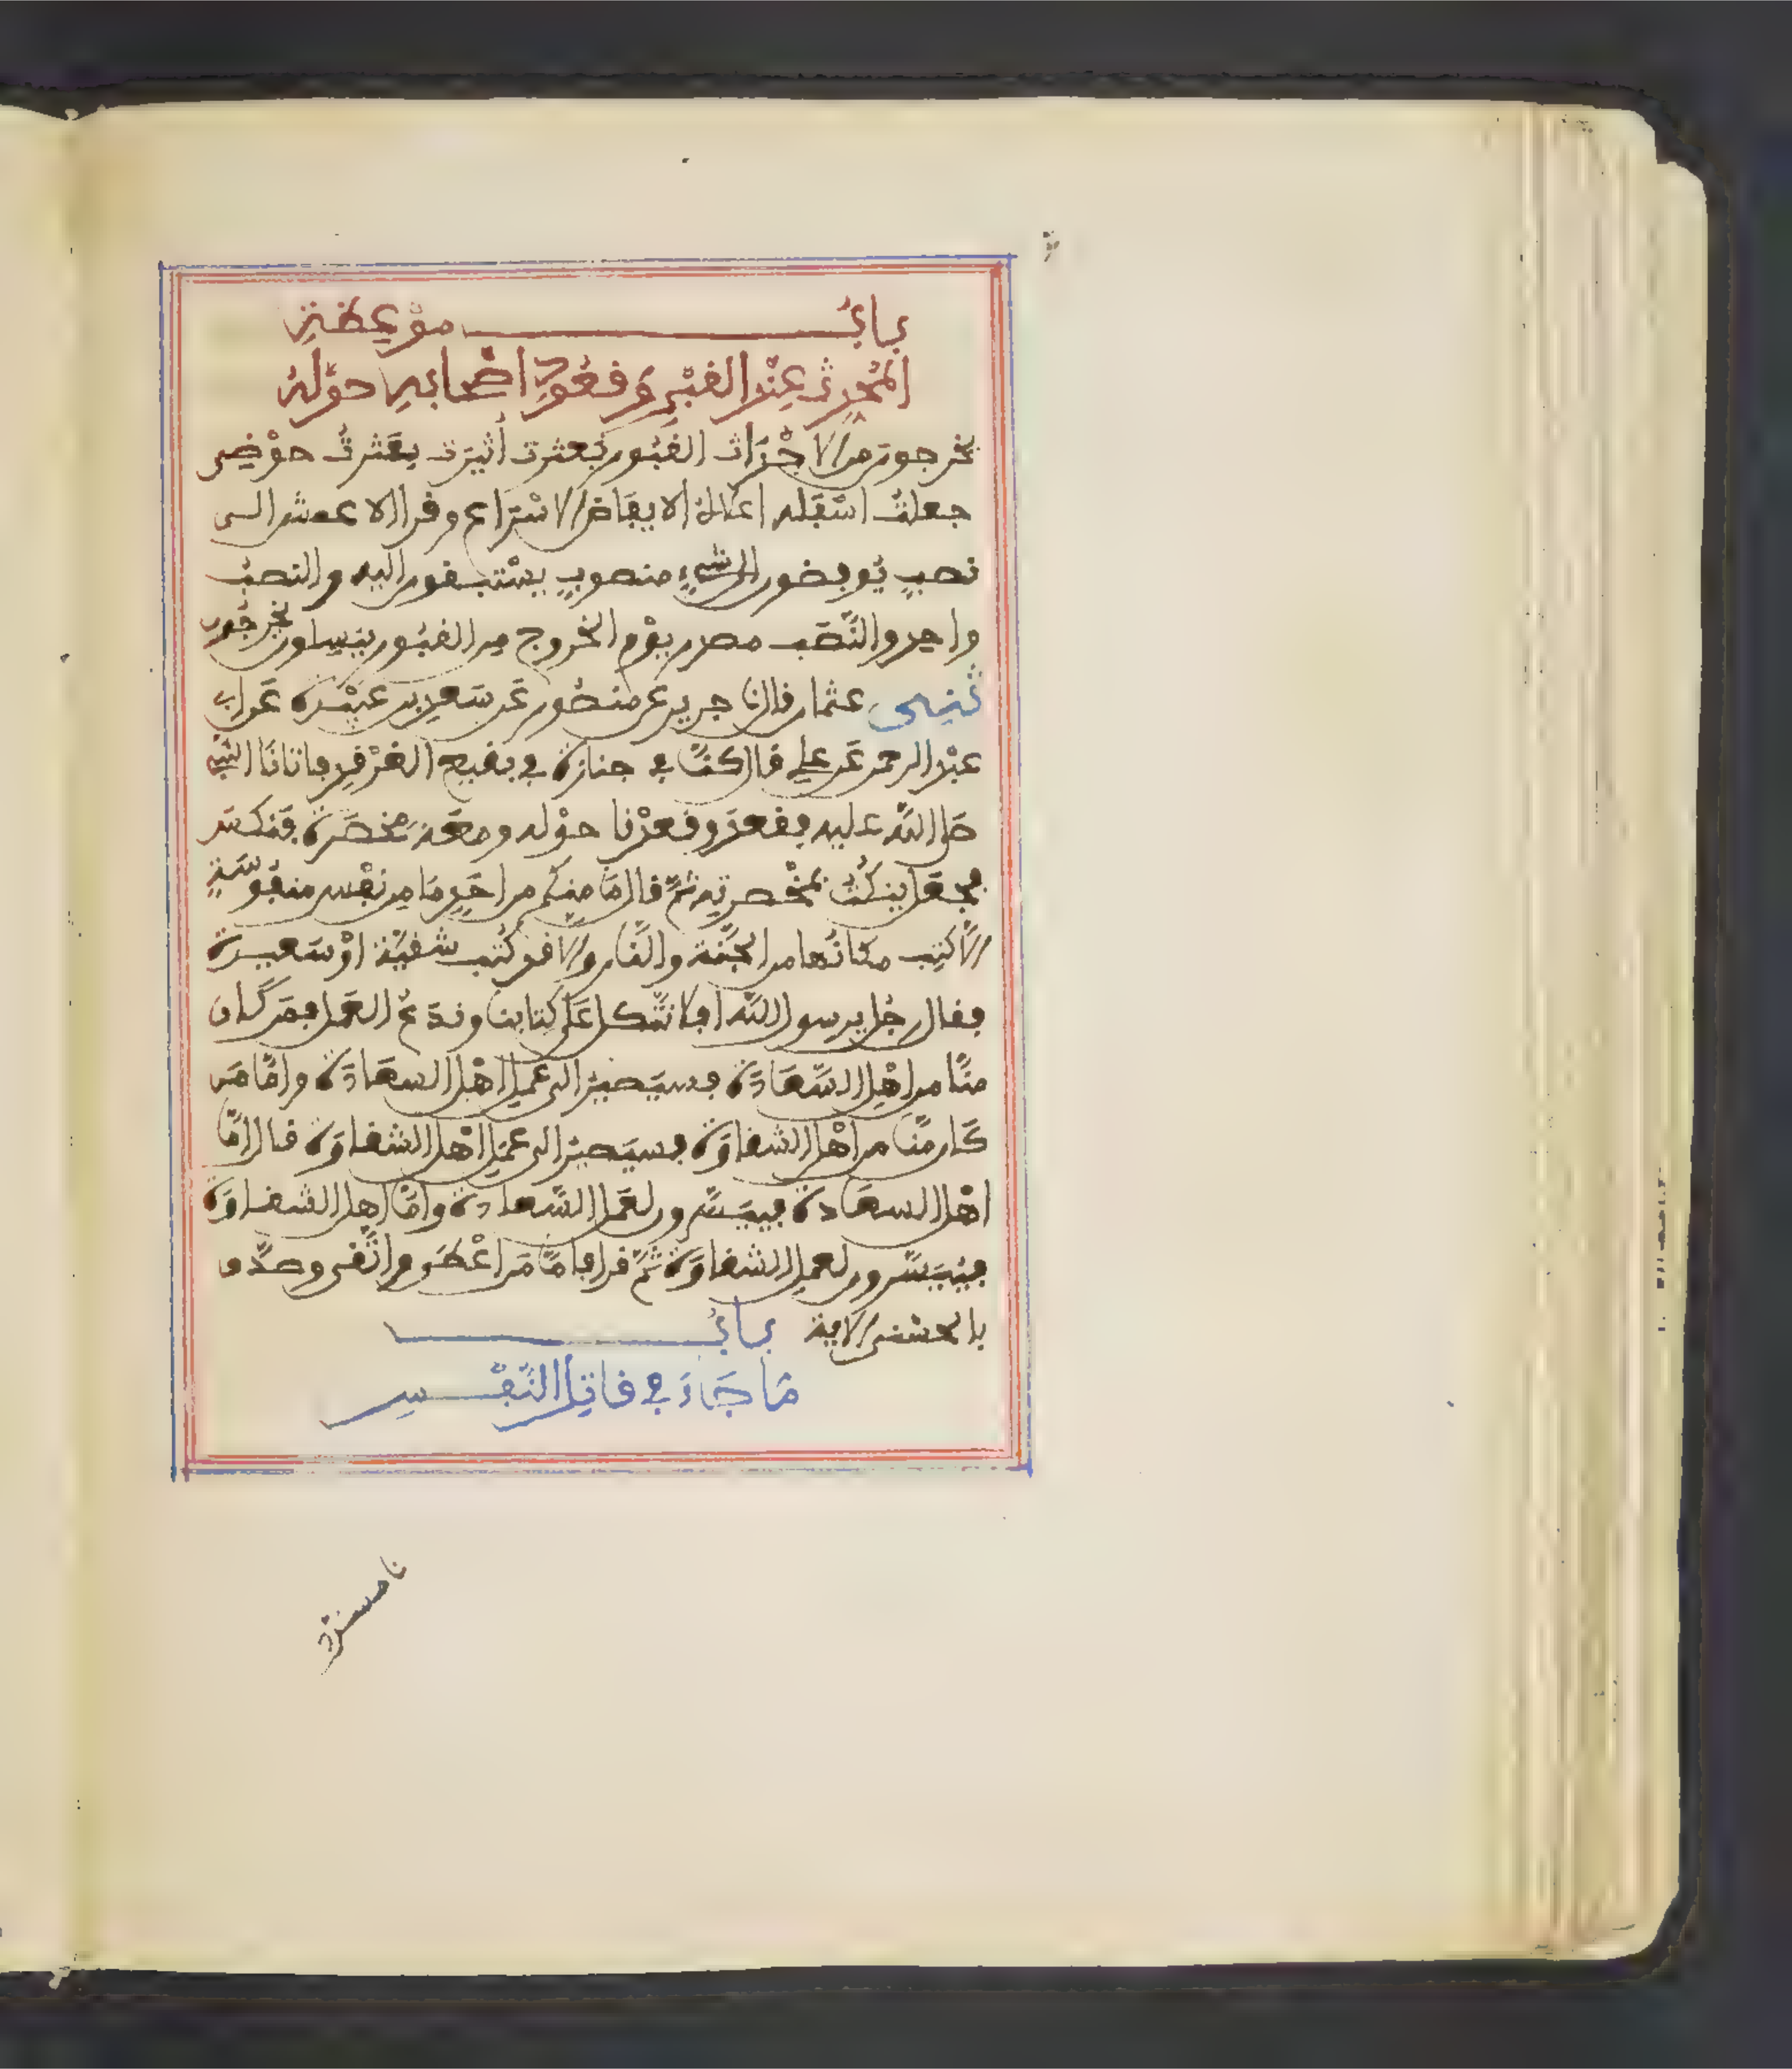 بابُ موْعِظةِ
المُحدِثِ عِنْد القبْرِ وَقعُودِ اصْحابِهِ حوْلهُ
يخرجون من الاجْدَاث القبُور بُعثرت أُثيرَت بعَثرتُ حوْضِى
جعلتُ اسْفَله اعلاهُ الايفَاض الاسْرَاع وقرا الاعمش الى
نصبٍ يُوفضون الى شيءٍ منصوبٍ يسْتبقون اليه والنصبُ
واحد والنَّصَب مصدر يوْم الخروج من القبُور ينسِلون يخرجُون
ثنِى عثمان قال نا جرير عن منصُور عَن سَعدِ بن عبيْدة عَن ابى
عبْد الرحمن عَن علي قال كنَّا في جنازة في بقيع الغرْقدِ فاتانَا النبي
صلى الله عليه فقعدَ وقعدْنا حوْله ومعَهُ مِخصَرة فنكس
فجعَل ينكُتُ بمخْصرتِه ثمَّ قال مَا منكُم من احَدٍ مَا مِن نفْس منفُوسَةٍ
الاَّ كتِب مكانُها من الجَنَّة والنَّار والا قد كُتب شقيَّة اوْ سَعيدة
فقال رجُل يرسول الله افلا نتَّكل عَلى كتابنا ونَدَعُ العَمل فمَن كَان
منَّا من اهْلِ السَّعَادَة فسيَصيرُ الى عمَلِ اهْل السعَادَة وامَّا مَن
كَان منَّا من اهْل الشقاوَة فسيَصيرُ الى عمَلِ اهْل الشقاوَة قال امَّا
اهْل السعَادة فييَسَّرون لعَمل السَّعادة وامَّا اهل الشقاوَة
فيُيَسَّرون لعمل الشقاوَة ثمَّ قرا فامَّا مَن اعْطَى واتَّقى وصَدَّق
بالحسْنى الاية بابُ
مَا جَاءَ في قاتِل النَّفْسِ